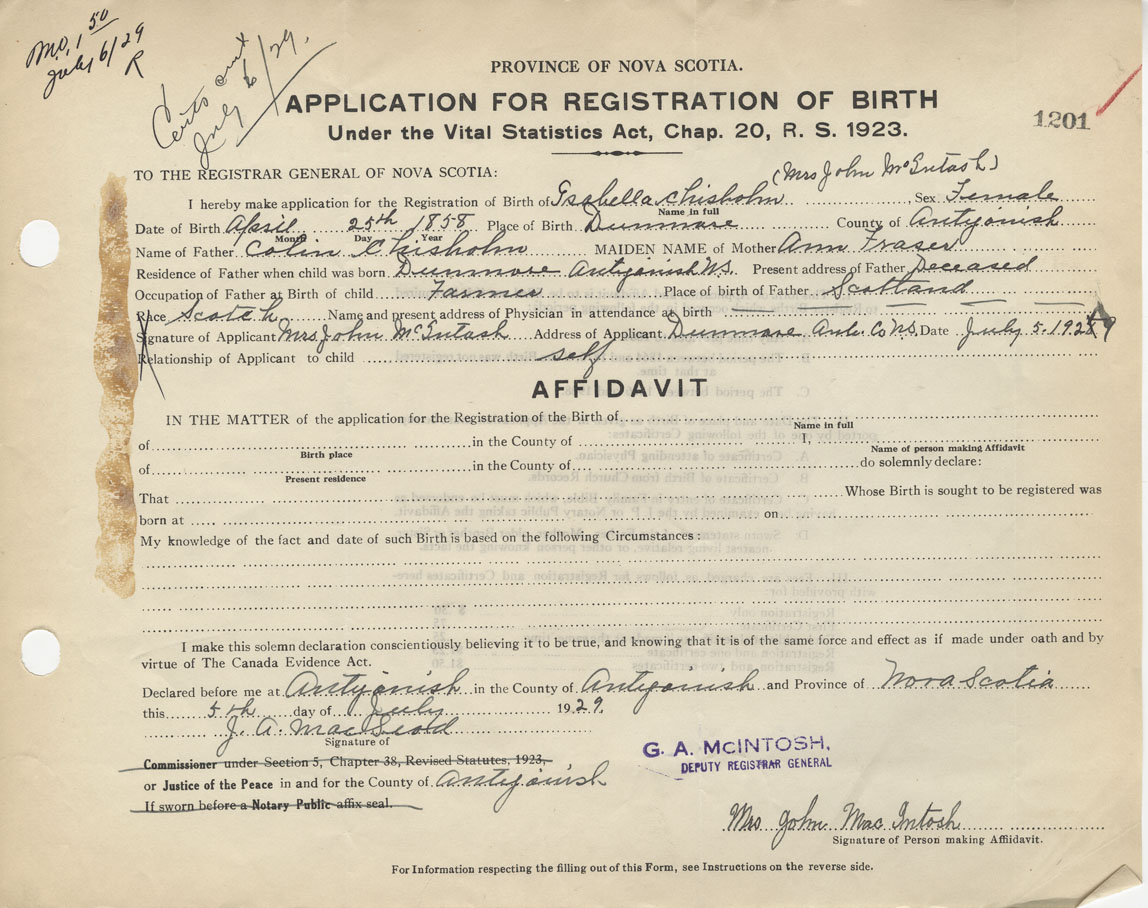 Mo, 1 50
July 6/29
R
Certs sent
July 6/29.
PROVINCE OF NOVA SCOTIA.
APPLICATION FOR REGISTRATION OF BIRTH
Under the Vital Statistics Act, Chap. 20, R. S. 1923.
1201
(Mrs John McIntash)
TO THE REGISTRAR GENERAL OF NOVA SCOTIA:
I hereby make application for the Registration of Birth of Isabella Chisholm Sex Female
Name in full
Date of Birth April 25th 1858 Place of Birth Dunmore County of Antigonish
Month Day Year
Name of Father Colin Chisholm MAIDEN NAME of Mother Ann Fraser
Residence of Father when child was born Dunmore Antigonish N.S. Present address of Father Deceased
Occupation of Father at Birth of child Farmer Place of birth of Father Scotland
Race Scotch Name and present address of Physician in attendance at birth
Signature of Applicant Mrs John McIntash Address of Applicant Dunmore Ant. Co N.S. Date July 5. 1929
Relationship of Applicant to child self
AFFIDAVIT
IN THE MATTER of the application for the Registration of the Birth of
Name in full
of in the County of I,
Birth place Name of person making Affidavit
of in the County of do solemnly declare:
Present residence
That Whose Birth is sought to be registered was
born at on
My knowledge of the fact and date of such Birth is based on the following Circumstances:
I make this solemn declaration conscientiously believing it to be true, and knowing that it is of the same force and effect as if made under oath and by
virtue of The Canada Evidence Act.
Declared before me at Antigonish in the County of Antigonish and Province of Nova Scotia
this 5th day of July 1929.
J. A. MacLeod
Signature of
Commissioner under Section 5, Chapter 38, Revised Statutes, 1923,
or Justice of the Peace in and for the County of Antigonish
If sworn before a Notary Public affix seal.
G. A. McINTOSH,
DEPUTY REGISTRAR GENERAL
Mrs John MacIntosh
Signature of Person making Affidavit.
For Information respecting the filling out of this Form, see Instructions on the reverse side.